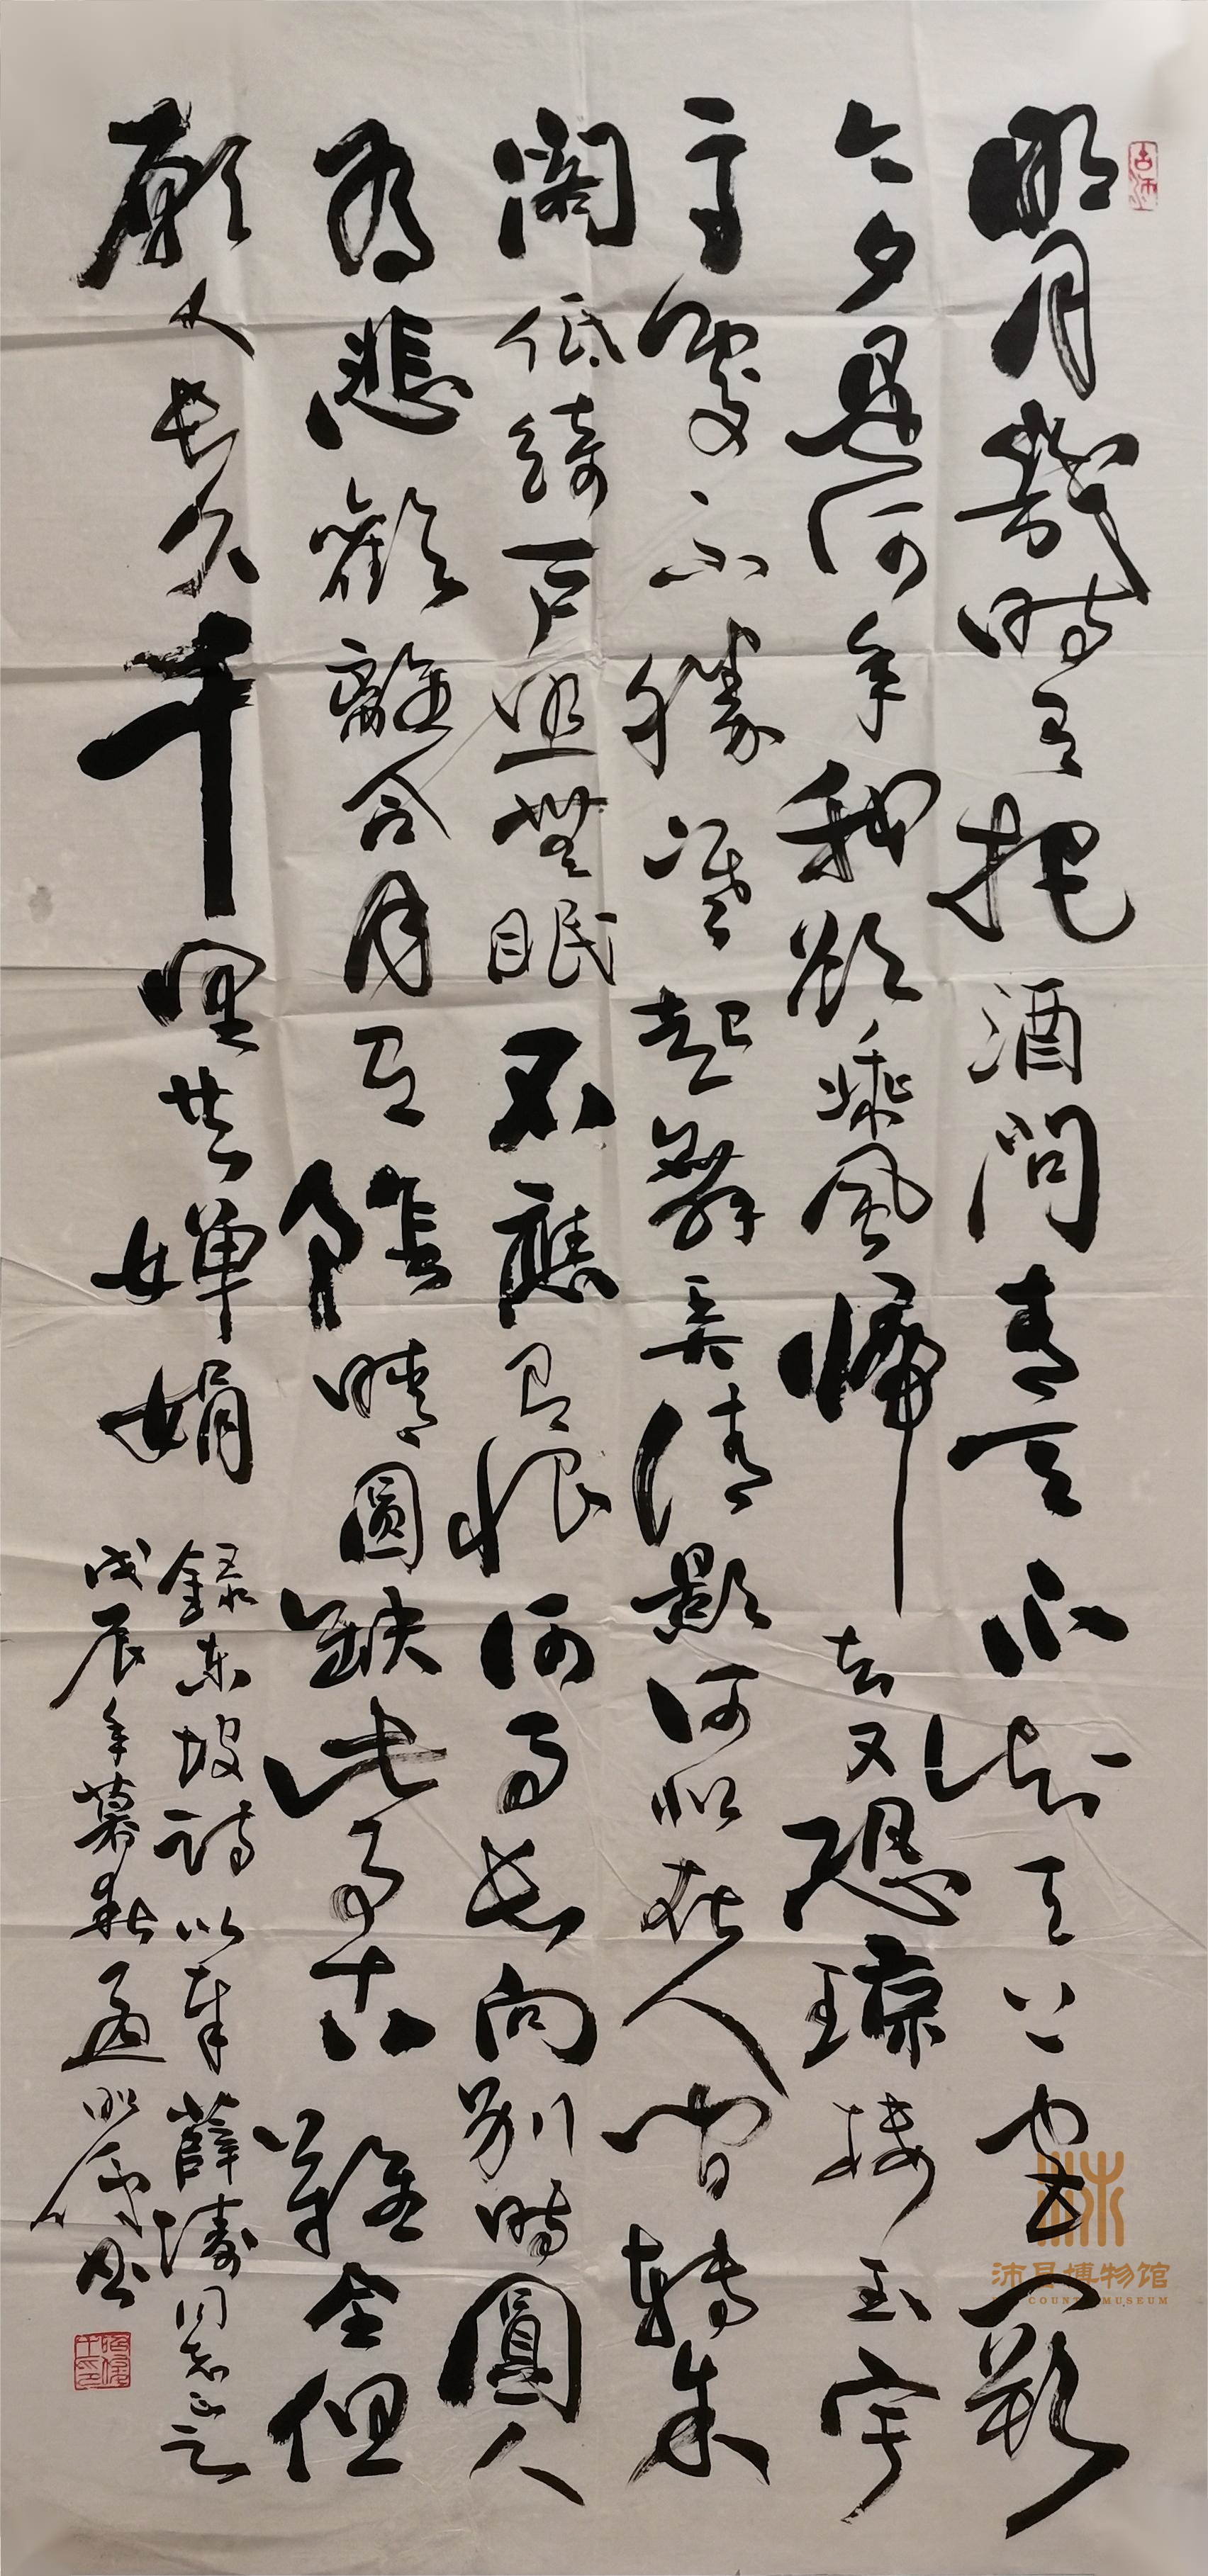 明月幾時有把酒問青天不知天上宮闕
今夕是何年我欲乘風歸去又恐琼樓玉宇
高處不勝寒起舞弄清影何似在人間轉朱
閣低綺户照無眠不應有恨何事長向別時圓人
有悲歡離合月有陰晴圓缺此事古難全但
願人長久千里共嬋娟
錄東坡詩以奉薛濤同志正之
戊辰年暮秋孟昭
沛县博物馆
COUNTY MUSEUM